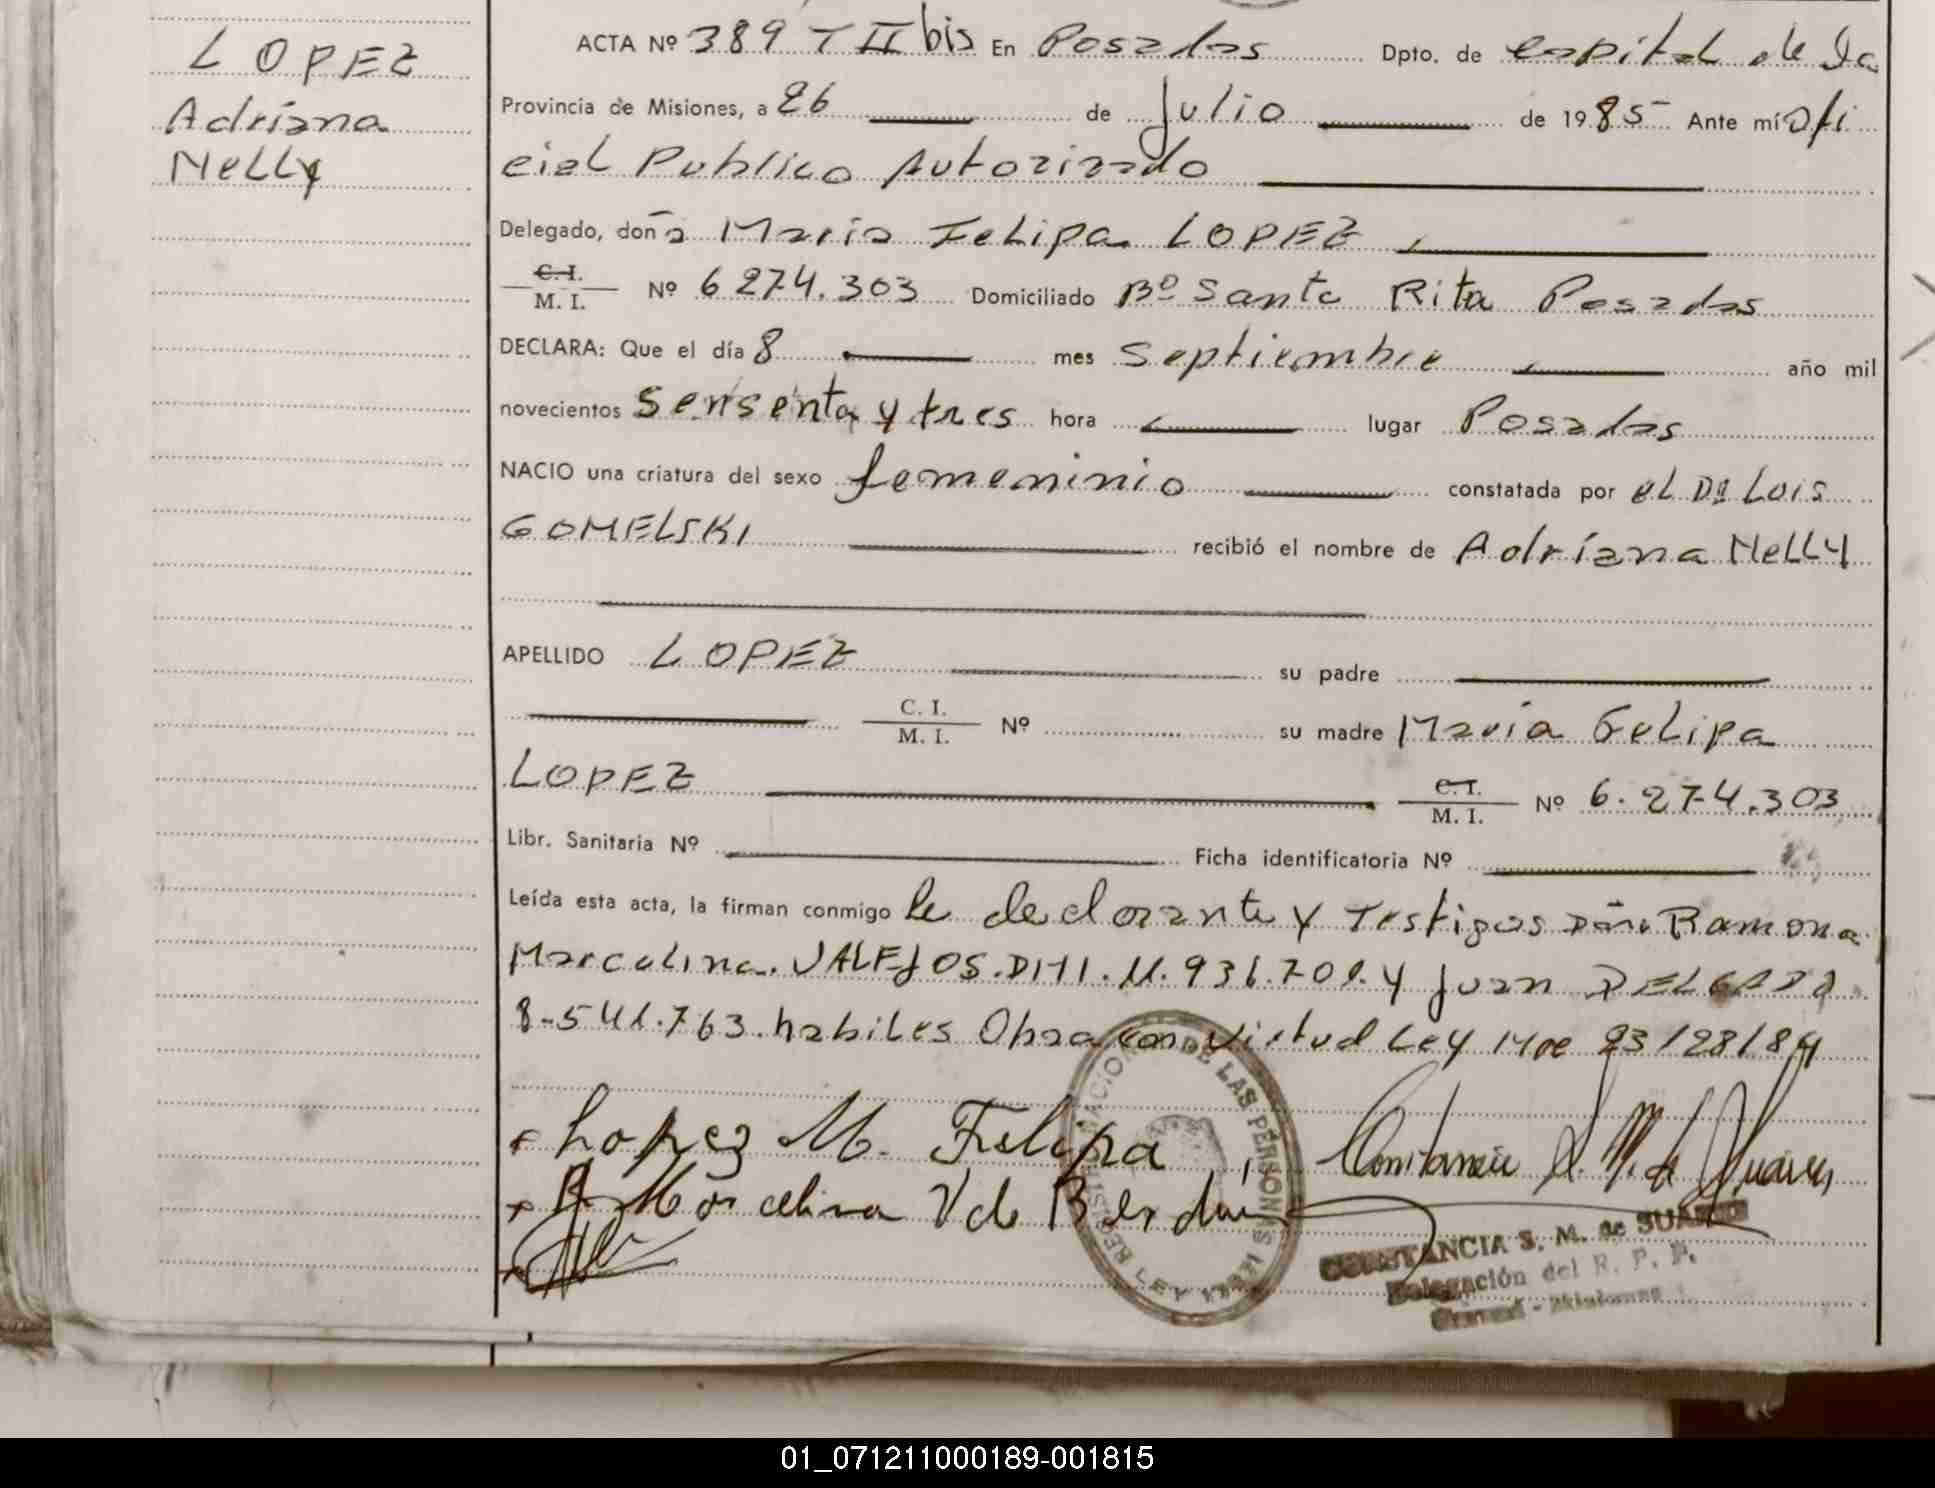 LOPEZ
Adriana
Nelly
ACTA Nº 389 T II bis En Posadas Dpto. de capital de la
Provincia de Misiones, a 26 de Julio de 1985 Ante mí Ofi
cial Publico Autorizado
Delegado, doña Maria Felipa LOPEZ
C. I.
M. I. Nº 6274.303 Domiciliado Bº Santa Rita Posadas
DECLARA: Que el día 8 mes Septiembre año mil
novecientos sensenta y tres hora lugar Posadas
NACIO una criatura del sexo femeninio constatada por el Dr Luis
GOMELSKI recibió el nombre de Adriana Nelly
APELLIDO LOPEZ su padre
C. I.
M. I. Nº su madre Maria Felipa
LOPEZ C. I.
M. I. Nº 6.274.303
Libr. Sanitaria Nº Ficha identificatoria Nº
Leída esta acta, la firman conmigo la declarante y Testigos Doña Ramona
Marcelina VALEJOS. DNI. y Juan DELGADO
8-541.763. habiles Obra en Virtud Ley
Lopez M. Felipa
R. Marcelina V de
Constancia S. M. de Suarez
REGISTRO DE LAS PERSONAS LEY
CONSTANCIA S. M. de SUAREZ
Delegación del R. P. P.
01_071211000189-001815